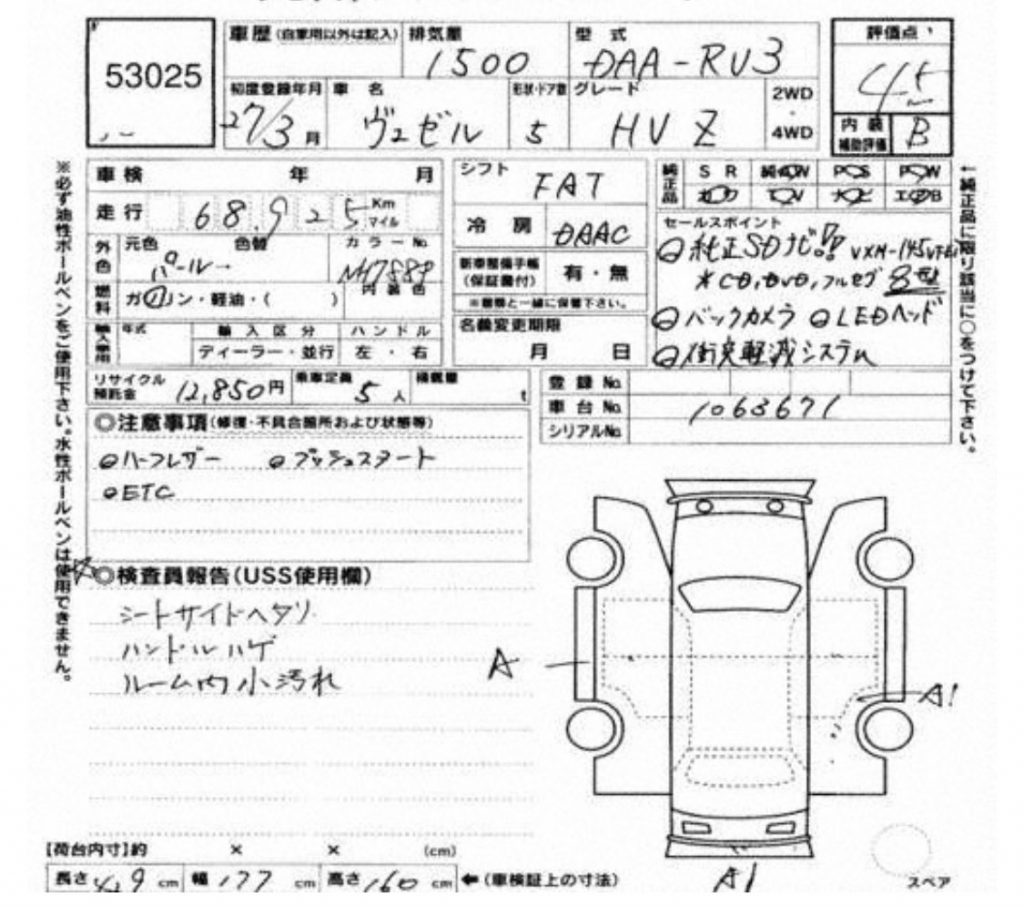 53025
車歴(自家用以外は記入)
排気量
1500
型 式
DAA-RU3
評価点
4.5
初度登録年月
27/3月
車 名
ヴェゼル
形状・ドア数
5
グレード
HV Z
2WD
・
4WD
内 装
補助評価
B
車検 年 月
走行 68,925 Km マイル
シフト
FAT
冷 房
DAAC
純正品
S R 純AW PS PW
カワ TV ナビ エアB
外色
元色 色替
パール→
カラーNo.
NH788P
内装色
新車整備手帳
(保証書付)
有・無
※書類と一緒に保管下さい。
セールスポイント
純正SDナビ!! VXM-145VFEi
*CD,DVD,フルセグ 8型
バックカメラ LEDヘッド
衝突軽減システム
燃料
ガソリン・軽油・( )
輸入車用
年式
輸入区分
ハンドル
ディーラー・並行
左・右
名義変更期限
月 日
リサイクル
預託金
12,850円
乗車定員
5人
積載量
t
登録No.
車台No. 1063671
シリアルNo.
◎注意事項(修復・不具合箇所および状態等)
ハーフレザー プッシュスタート
ETC
◎検査員報告(USS使用欄)
シートサイドヘタリ
ハンドルハゲ
ルーム内小汚れ
A
A1
A1
スペア
【荷台内寸】約 × × (cm)
長さ 429 cm 幅 177 cm 高さ 160 cm ←(車検証上の寸法)
※必ず油性ボールペンをご使用下さい。水性ボールペンは使用できません。
←純正品に限り該当に○をつけて下さい。